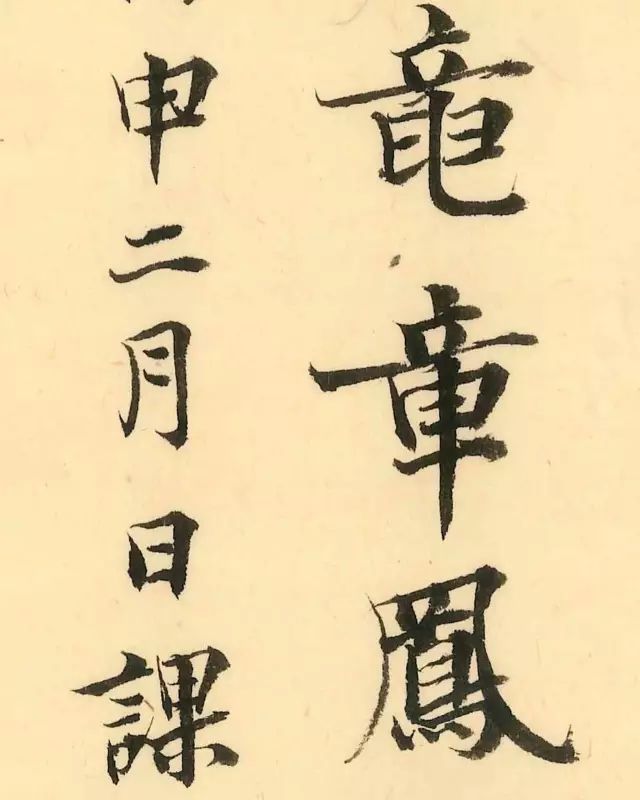 竜章鳳
申二月日課